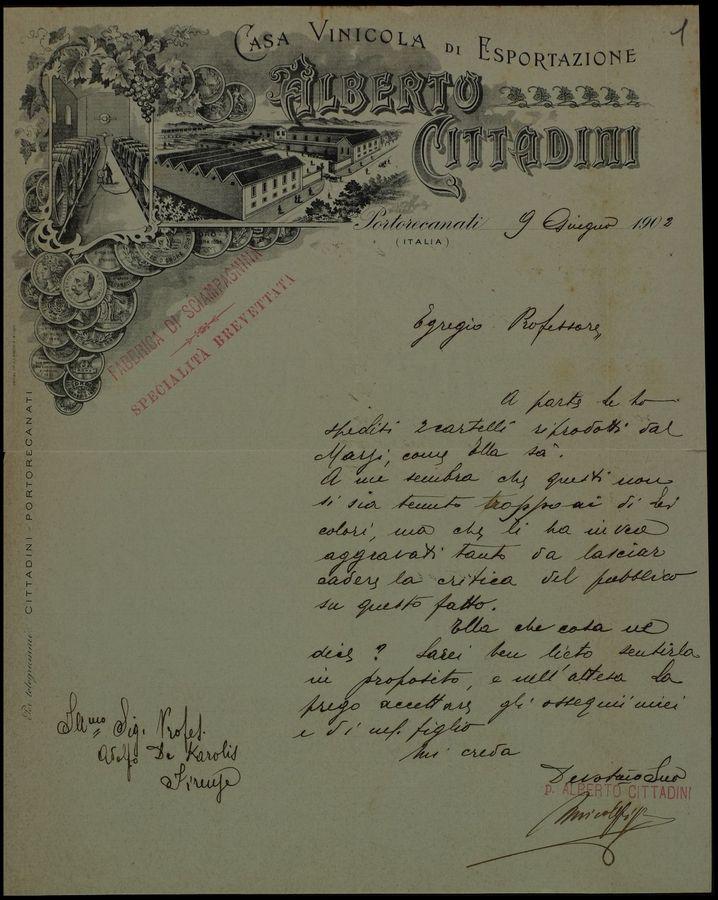 1
CASA VINICOLA DI ESPORTAZIONE
ALBERTO
CITTADINI
Portorecanati 9 Giugno 1902
(ITALIA)
FABBRICA DI SCIAMPAGNINA
SPECIALITÀ BREVETTATA
Per telegrammi: CITTADINI - PORTORECANATI
Egregio Professore,
A parte le ho
spediti 2 cartelli riprodotti dal
Marzi, come Ella sà.
A me sembra che questi non
si sia tenuto troppo ai di Lei
colori, ma che li ha invece
aggravati tanto da lasciar
cadere la critica del pubblico
su questo fatto.
Ella che cosa ne
dice? Sarei ben lieto sentirla
in proposito, e nell'attesa La
prego accettare gli ossequii miei
e di figlio
Mi creda
Devotmo Suo
p. ALBERTO CITTADINI
Illmo Sig. Profes.
Adolfo De Karolis
Firenze